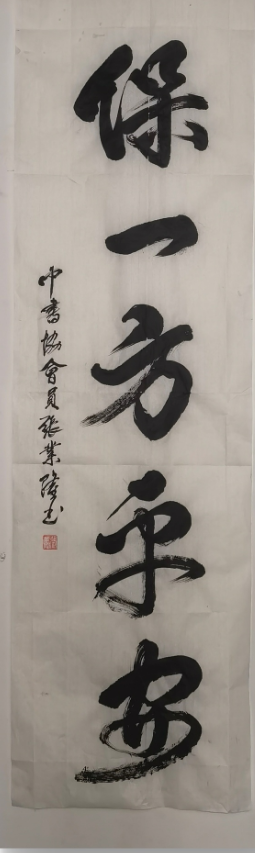 保一方平安
中書協會員張業隆书